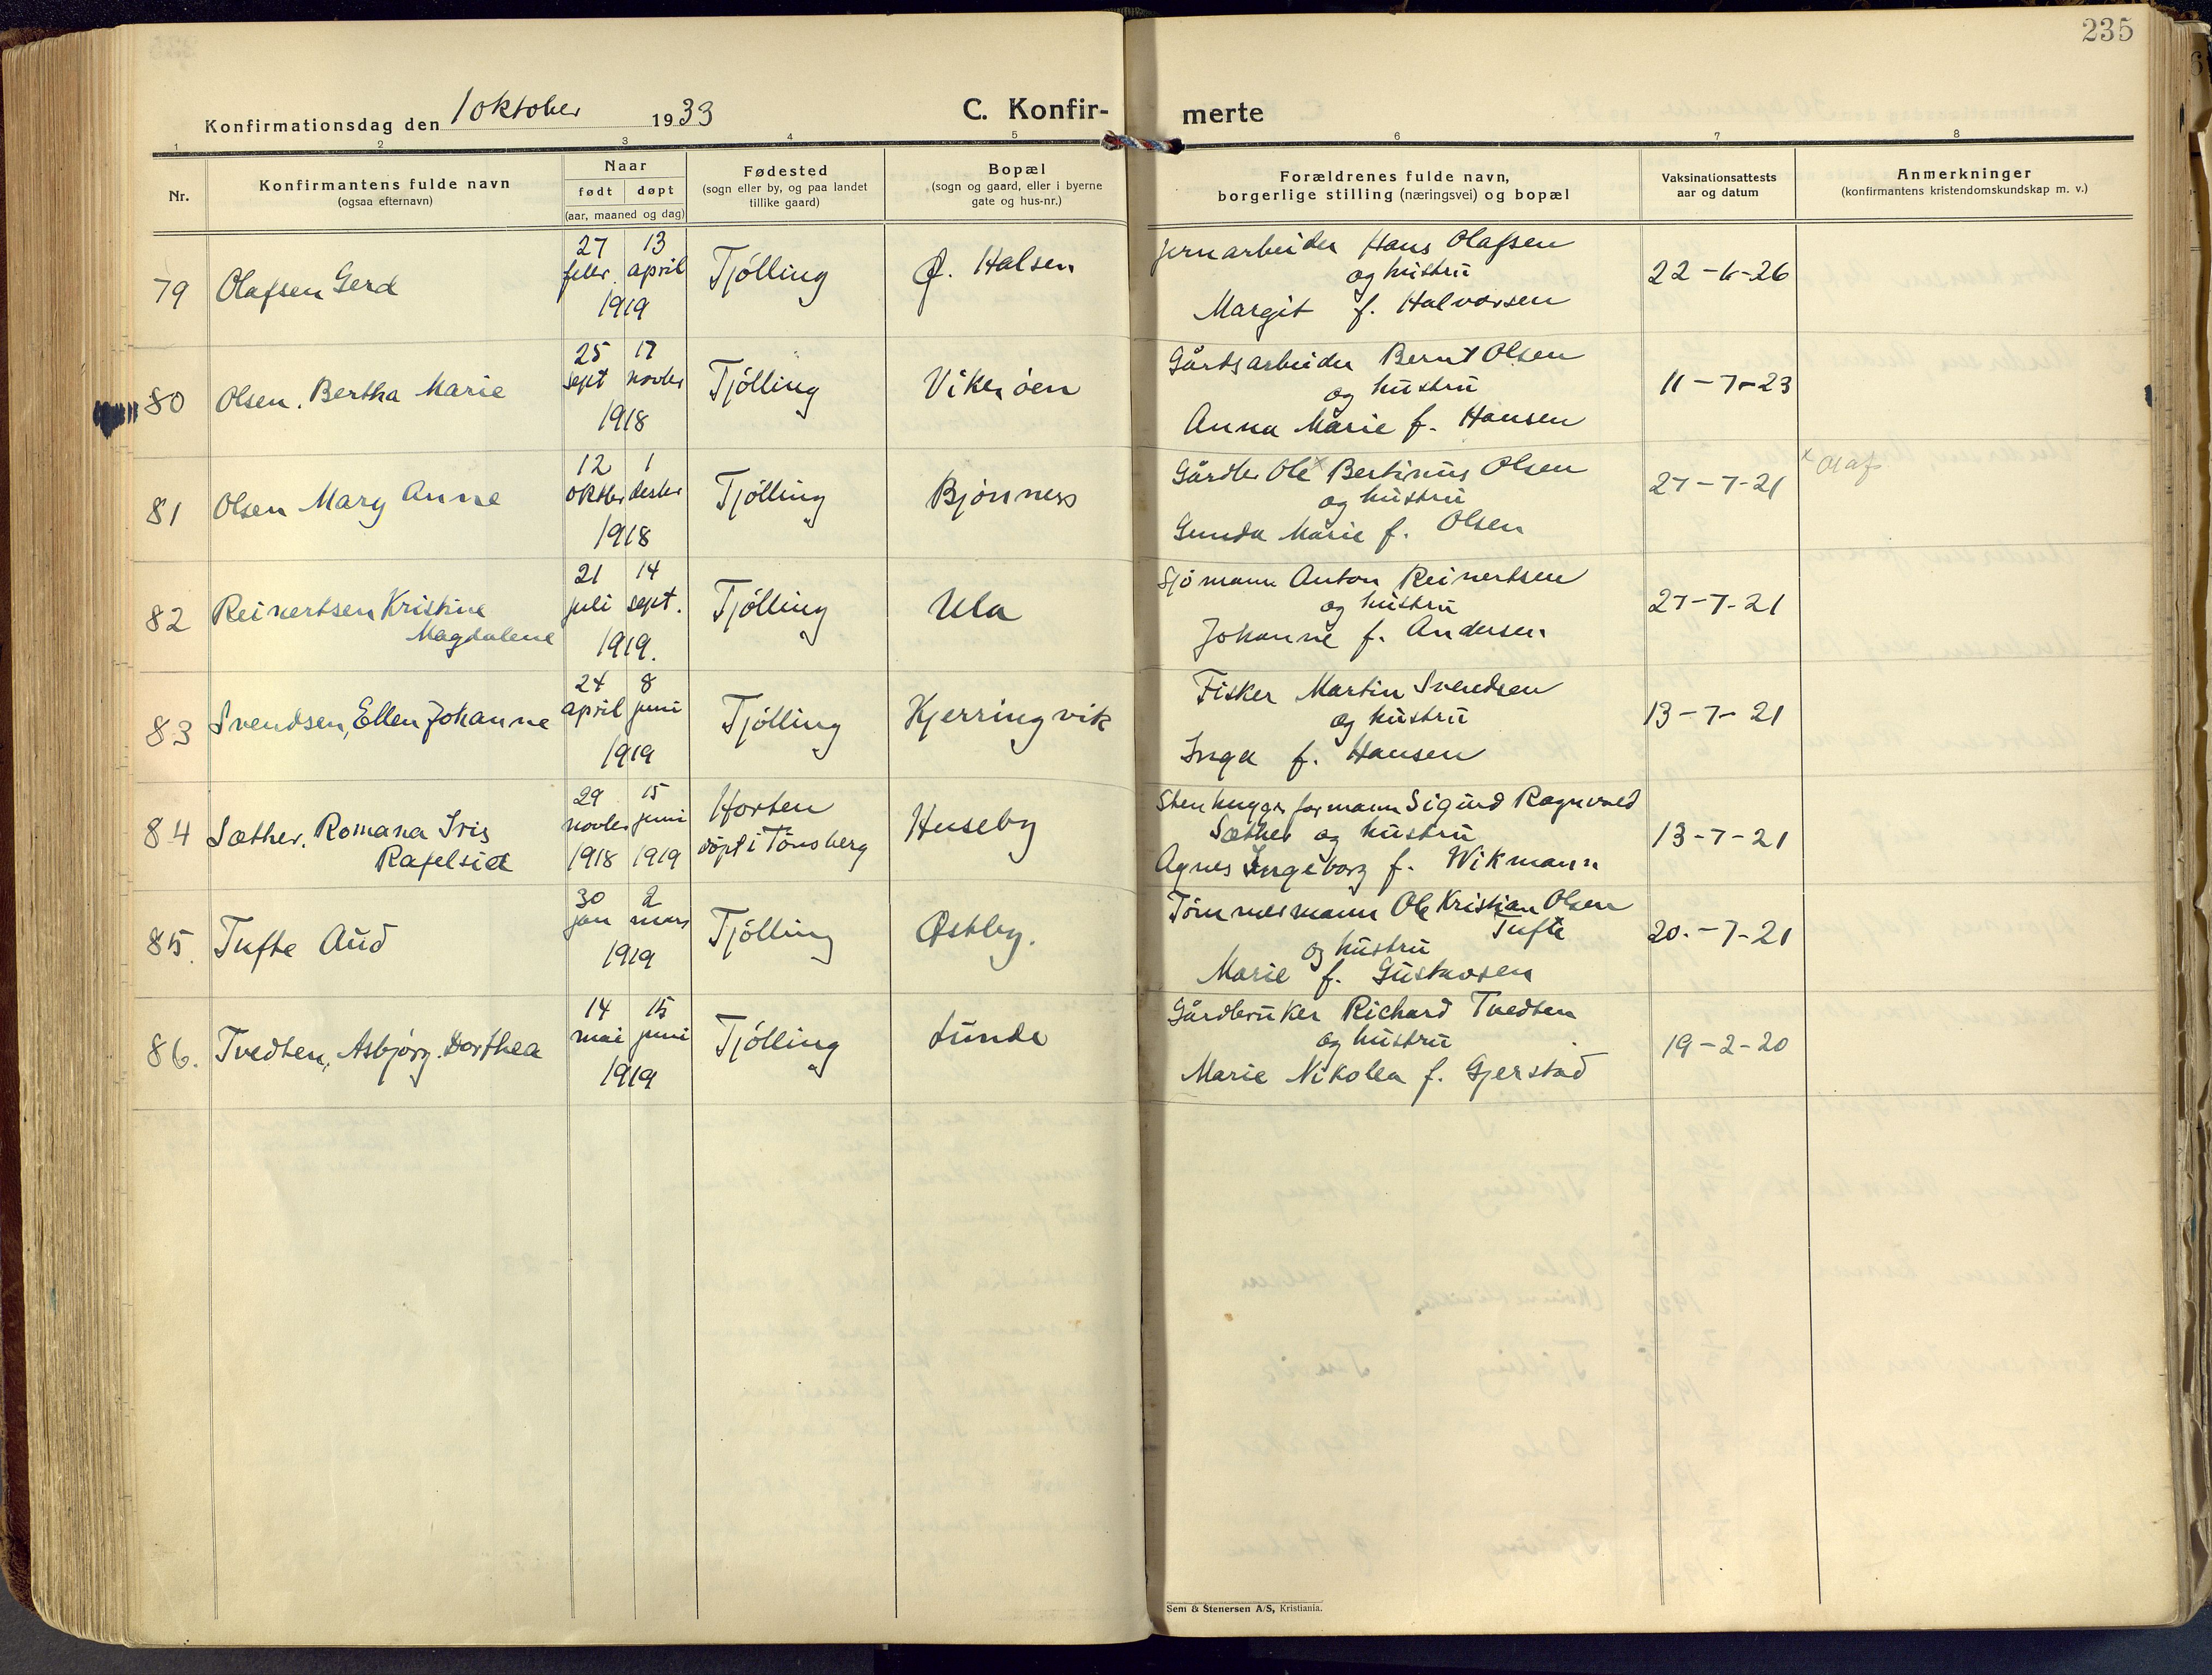 235
Konfirmationsdag den 1 oktober 1933
C. Konfir-merte
1 2 3 4 5 6 7 8
Nr.
Konfirmantens fulde navn
(ogsaa efternavn)
Naar
født døpt
(aar, maaned og dag)
Fødested
(sogn eller by, og paa landet
tillike gaard)
Bopæl
(sogn og gaard, eller i byerne
gate og hus-nr.)
Forældrenes fulde navn,
borgerlige stilling (næringsvei) og bopæl
Vaksinationsattests
aar og datum
Anmerkninger
(konfirmantens kristendomskundskap m. v.)
79 Olafsen Gerd
27 13
febr. april
1919
Tjölling
Ø. Halsen
Jernarbeider Hans Olafsen
og hustru
Margit f. Halvorsen
22-6-26
80 Olsen, Bertha Marie
25 17
sept novbr
1918
Tjölling
Vikerøen
Gårdsarbeider Bernt Olsen
og hustru
Anna Marie f. Hansen
11-7-23
81 Olsen Mary Anne
12 1
oktbr desbr
1918
Tjölling
Bjönnes
Gårdbr Ole x Bertinius Olsen
og hustru
Gunda Marie f. Olsen
27-7-21
x Olaf
82 Reinertsen Kristine
Magdalene
21 14
juli sept.
1919.
Tjölling
Ula
Sjömann Anton Reinertsen
og hustru
Johanne f. Andersen
27-7-21
83 Svendsen, Ellen Johanne
24 8
april juni
1919
Tjölling
Kjerringvik
Fisker Martin Svendsen
og hustru
Inga f. Hansen
13-7-21
84 Sæther, Romana Iris
Rafelsia
29 15
novbr juni
1918 1919
Horten
döpt i Tönsberg
Huseby
Stenhuggerformann Sigurd Ragnvald
Sæther og hustru
Agnes Ingeborg f. Wikmann
13-7-21
85. Tufte Aud
30 2
jan mars
1919
Tjölling
Østby.
Tömmermann Ole Kristian Olsen
Tufte
og hustru
Marie f. Gustavsen
20.-7-21
86. Tvedten, Asbjørg Dorthea
14 15
mai juni
1919
Tjölling
Lunde
Gårdbruker Richard Tvedten
og hustru
Marie Nikolea f. Gjerstad
19-2-20
Sem & Stenersen A/S, Kristiania.